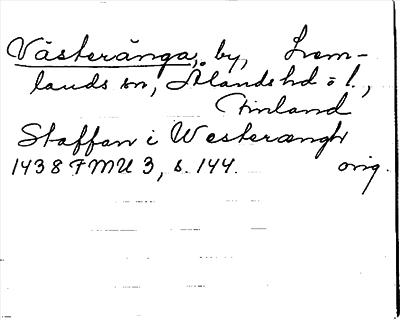 Västerånga, by, Lem-
lands sn, Ålands hd o l.,
Finland
Staffan i Westerængh
1438 FMU 3, s. 144. orig.